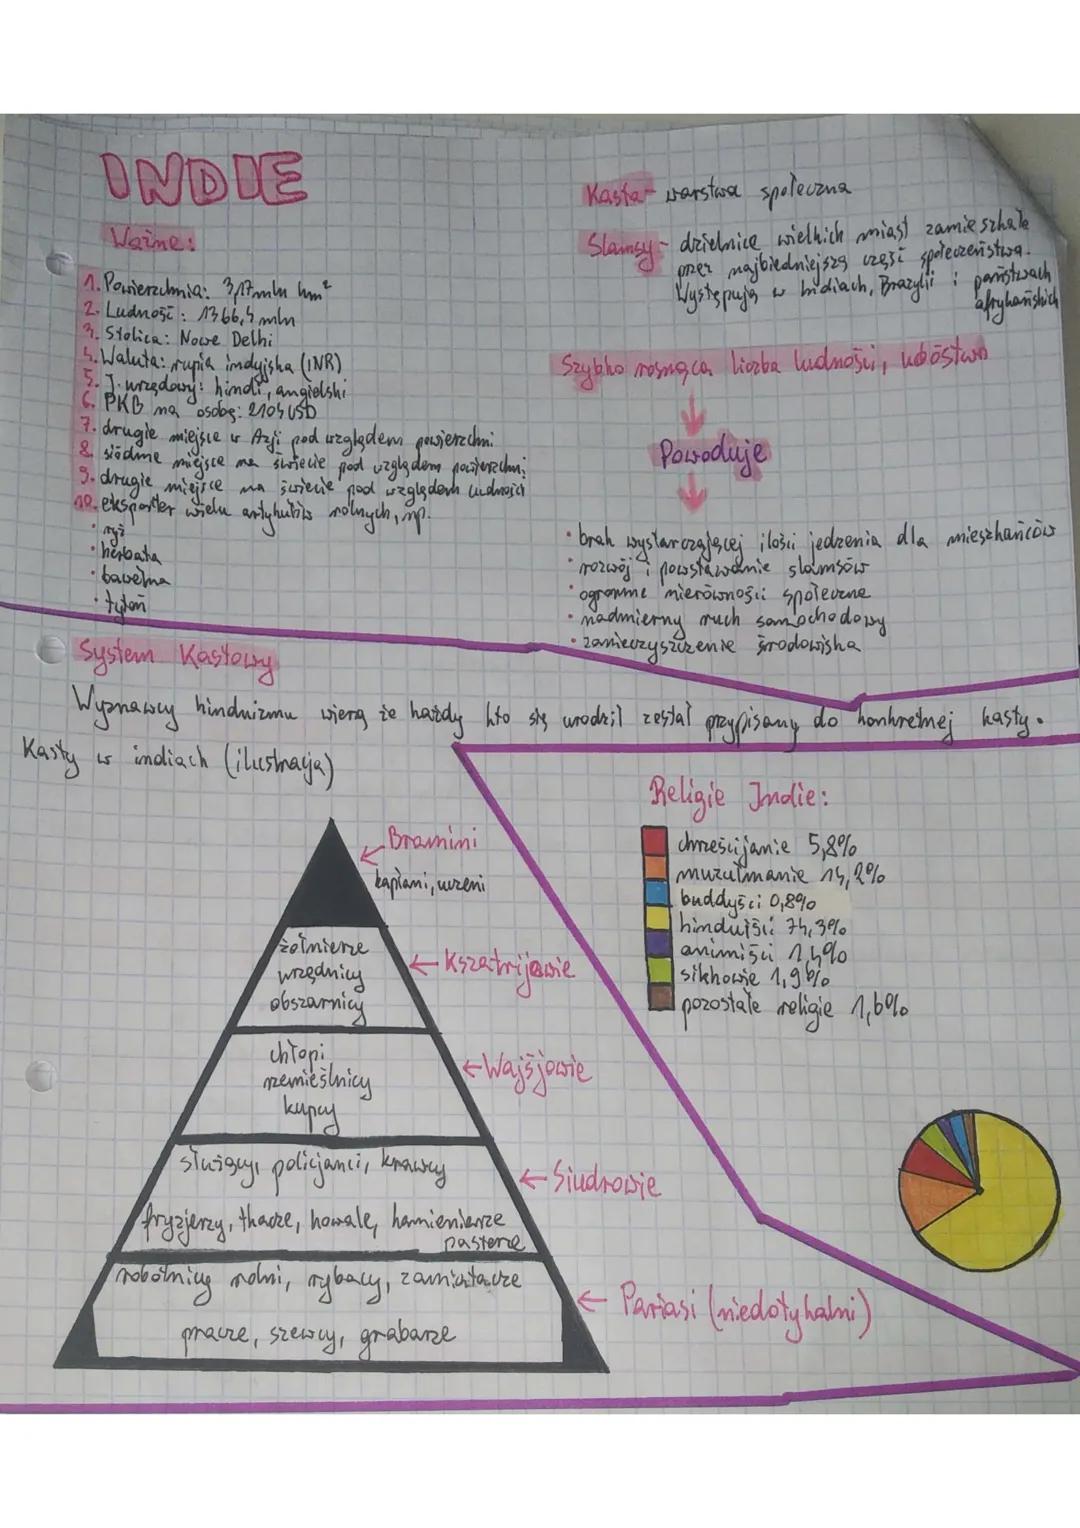 INDIE
Ważne:
1. Powierzchnia: 3,17 mln km²
2. Ludność: 1366,4 mln
3. Stolica: Nowe Delhi
4. Waluta: rupia indyjska (INR)
5. J. urzędowy: hindi, angielski
6. PKB na osobę: 2104 USD
7. drugie miejsce w Azji pod względem powierzchni
8. siódme miejsce na świecie pod względem powierzchni
9. drugie miejsce na świecie pod względem ludności
10. eksporter wielu artykułów rolnych, np.
• ryż
• herbata
• bawełna
• tytoń
Kasta - warstwa społeczna
Slamsy - dzielnice wielkich miast zamieszkałe
przez najbiedniejszą część społeczeństwa.
Występują w Indiach, Brazylii i państwach
afrykańskich
Szybko rosnąca liczba ludności, ubóstwo
Powoduje
• brak wystarczającej ilości jedzenia dla mieszkańców
• rozwój i powstawanie slamsów
• ogromne nierówności społeczne
• nadmierny ruch samochodowy
• zanieczyszczenie środowiska
System Kastowy
Wyznawcy hinduizmu wierzą że każdy kto się urodził został przypisany do konkretnej kasty.
Kasty w indiach (ilustracja)
Bramini
kapłani, uczeni
żołnierze
urzędnicy
obszarnicy
Kszatrijowie
chłopi
rzemieślnicy
kupcy
Wajśjowie
służący, policjanci, krawcy
fryzjerzy, tkacze, kowale, kamieniarze
pasterze
Siudrowie
robotnicy rolni, rybacy, zamiatacze
pracze, szewcy, grabarze
Pariasi (niedotykalni)
Religie Indie:
chrześcijanie 5,8%
muzułmanie 14,2%
buddyści 0,8%
hinduiści 74,3%
animiści 1,4%
sikhowie 1,9%
pozostałe religie 1,6%